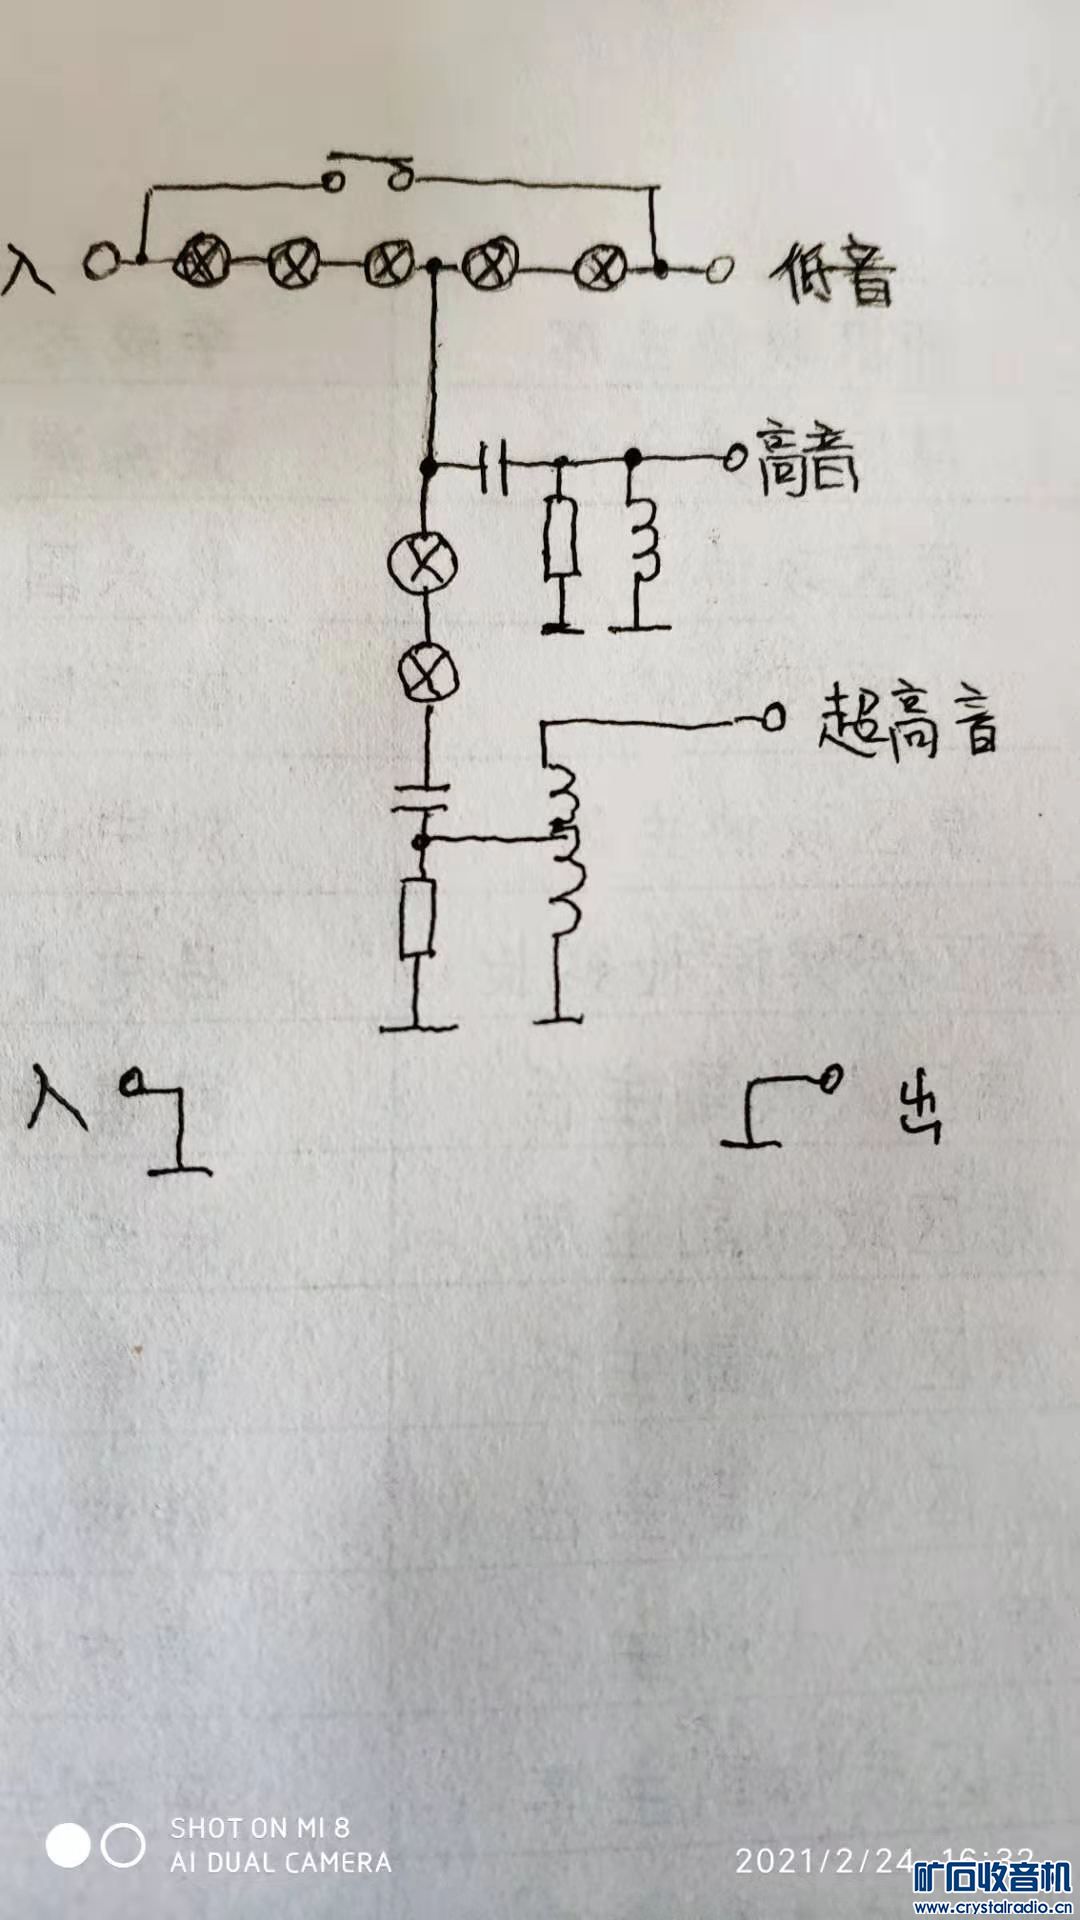 入
低音
高音
超高音
入
出
SHOT ON MI 8
AI DUAL CAMERA
2021/2/24 16:33
矿石收音机
www.crystalradio.cn